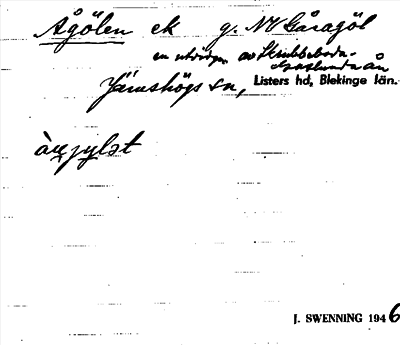 Ågölen ek g. NV Gåragöl
en utvidgn. av Skrubbeboda-
ån
Jämshögs sn, Listers hd, Blekinge län.
J. SWENNING 1946